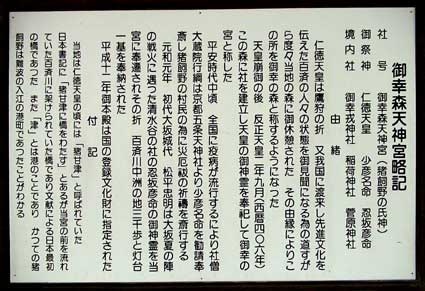 御幸森天神宮略記
社号　御幸森天神宮（猪飼野の氏神）
御祭神　仁徳天皇　少彦名命　忍坂彦命
境内社　御幸戎神社　稲荷神社　菅原神社
由緒
仁徳天皇は鷹狩の折　又我国に渡来し先進文化を
伝えた百済の人々の状態を御見聞になる為の道すが
ら度々当地の森に御休憩された　その由縁によりこ
の所を御幸の森と称するようになった
天皇崩御の後　反正天皇二年九月（西暦四〇六年）
この森に社を建立し天皇の御神霊を奉祀して御幸の
宮と称した
平安時代中頃　全国に疫病が流行するにより社僧
大蔵院行綱は京都五条天神社より少彦名命を勧請奉
斎し猪飼野の村民の為に災厄祓の祈祷を斎行する
元和元年　初代大坂城代　松平忠明は大坂夏の陣
の戦火に遇った清水谷の杜の忍坂彦命の御神霊を当
宮に奉遷されその折　百済川中洲の地三千歩と灯台
一基を奉納された
平成十二年御本殿は国の登録文化財に指定された
付記
当地は仁徳天皇の頃には「猪甘津」と呼ばれていた
日本書記に「猪甘津に橋をわたす」とあるが当宮の前を流れ
ていた百済川に架けられていた橋であり文献による日本最初
の橋であつた　また「津」とは港のことであり　かつての猪
飼野は難波の入江の港町であったことがわかる